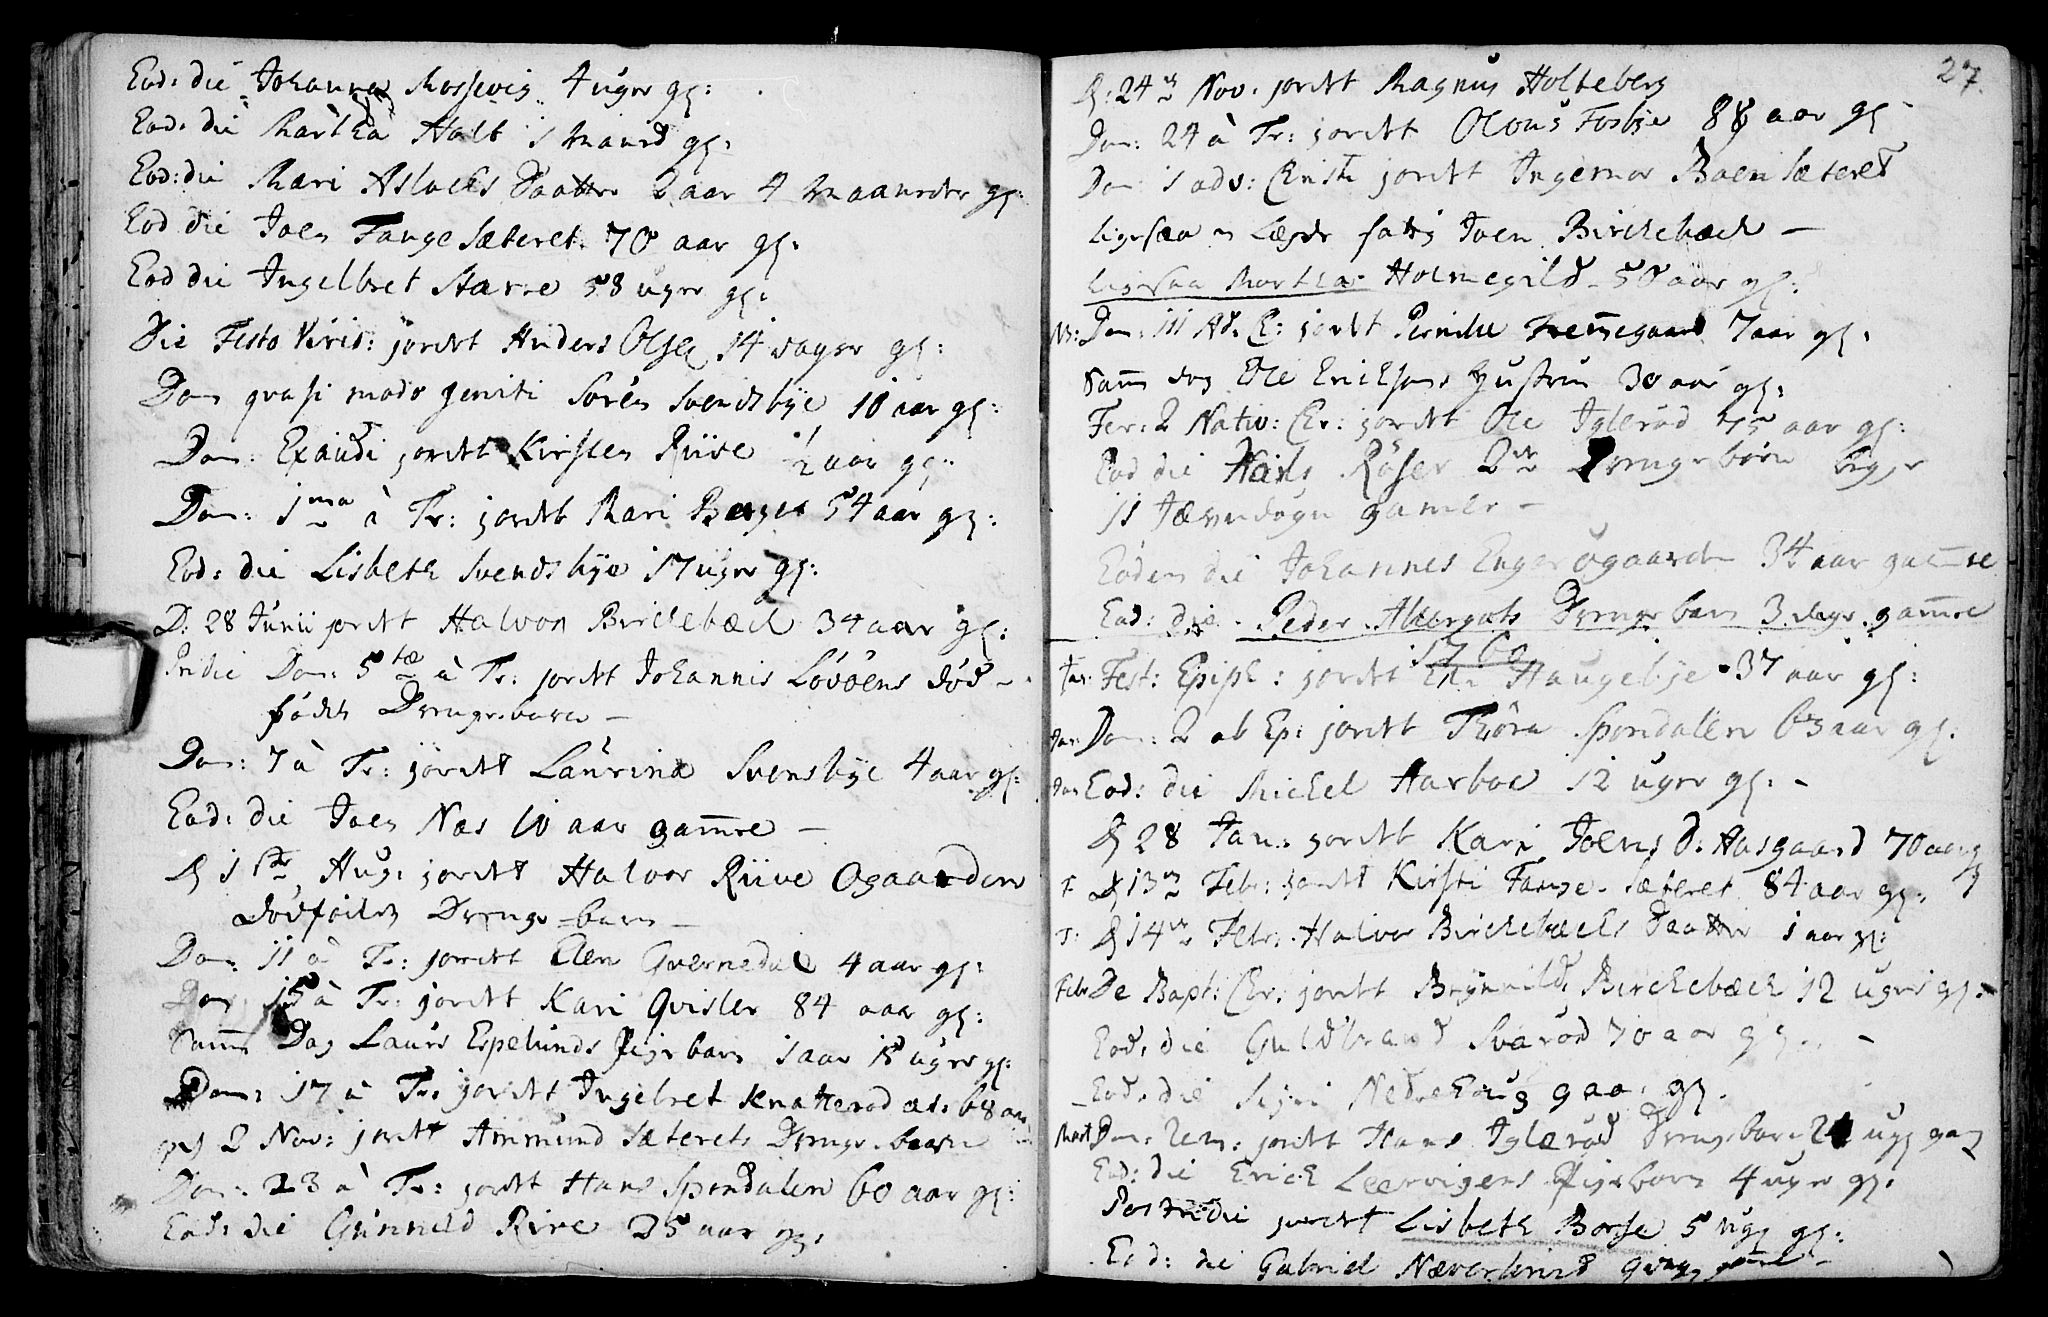 Eod: die Johanna Mossevig 4 uger gl:
Eod: die Martha Holt 1 Maaned gl:
Eod: die Mari Aslachs Daatter 2 aar 4 Maaneder gl:
Eod die Joen Tangesæteret 70 aar gl:
Eod die Ingelbret Starre 58 uger gl:
Die Festo Virid: jordet Anders Olsen 14 dager gl:
Dom quasi modo geniti Sören Svendsbÿe 10 aar gl:
Dom: Exaudi jordet Kirsten Riive 1/2 aar gl:
Dom: 1ma à Tr: jordet Mari Berger 54 aar gl:
Eod: die Lisbeth Svendsbÿe 17 uger gl:
D: 28 Junii jordet Halvor Birchebæch 34 aar gl:
Pridie Dom: 5tæ à Tr: jordet Johannis Lövöens död-
födte Drengebarn –
Dom: 7 à Tr: jordet Laurina Svensbÿe 4 aar gl:
Eod: die Joen Næs 10 aar gamle –
D 1ste Aug: jordet Halvor Riive Ogaarden
dödfödte Drenge-barn –
Dom: 11 à Tr: jordet Elen Qvernedal 4 aar gl:
Dom 15 à Tr: jordet Kari Qvisler 84 aar gl:
Samme Dag Laurs Espelunds Pigebarn 1 aar 15 uger gl:
Dom: 17 à Tr: jordet Ingebret Knatterød æt: 68 aar
2 Nov: jordet Ammund Sæterets Drenge-barn
Dom: 23 à Tr: jordet Hans Spondalen 60 aar gl:
Eod: die Gunnild Rive 25 aar gl:
27.
D: 24de Nov: jordet Magnus Holteberg
Dom: 24 à Tr: jordet Olous Fosbÿe 88 aar gl
Dom 1 adv: Christi jordet Ingemor Boensæteret
ligesaa Lægds fattig Joen Birchebæch –
ligesaa Martha Holmegild 50 aar gl:
Dom: 111 Ad. C: jordet Pernille Fremegaard 7 aar gl:
Samme dag Ole Ericksens Hustrue 30 aar gl:
Fer: 2 Nativ: Chr: jordet Ole Iglerød 75 aar gl:
Eod die Röser 2de Drengebörn begge
11 Jævndøgn gamle –
Eodem die Johannes Enger Ogaarden 34 aar gamle
Eod: die Peder Drengebarn 3 dage gamle
1760
Fest: Epiph: jordet Haugebÿe 37 aar gl:
Dom: 2 ab Ep: jordet Thöra Spondalen 63 aar gl.
Eod: die Michel Aarboe 12 uger gl: –
D 28 Jan: jordet Kari Joens D. Aasgaard 70 aar g
D 13de Febr: jordet Kirsti Tange-Sæteret 84 aar gl:
D 14de Febr: Halvor Birchebæchs Daatter 1 aar gl:
Febr De Bapt: Chr: jordet Brÿnnild Birchebæch 12 uger gl:
Eod: die Guldbrand Svarød 70 aar gl: –
Eod: die Siri Nedrehaug gl.
Mart Dom: Rem: jordet Hans Iglerød Drengebarn 24 ug
Eod: die Erich Leervigens Pigebarn 4 uger gl:
Postridie jordet Lisbeth Borse 5 ug gl:
Eod: die Gabriel